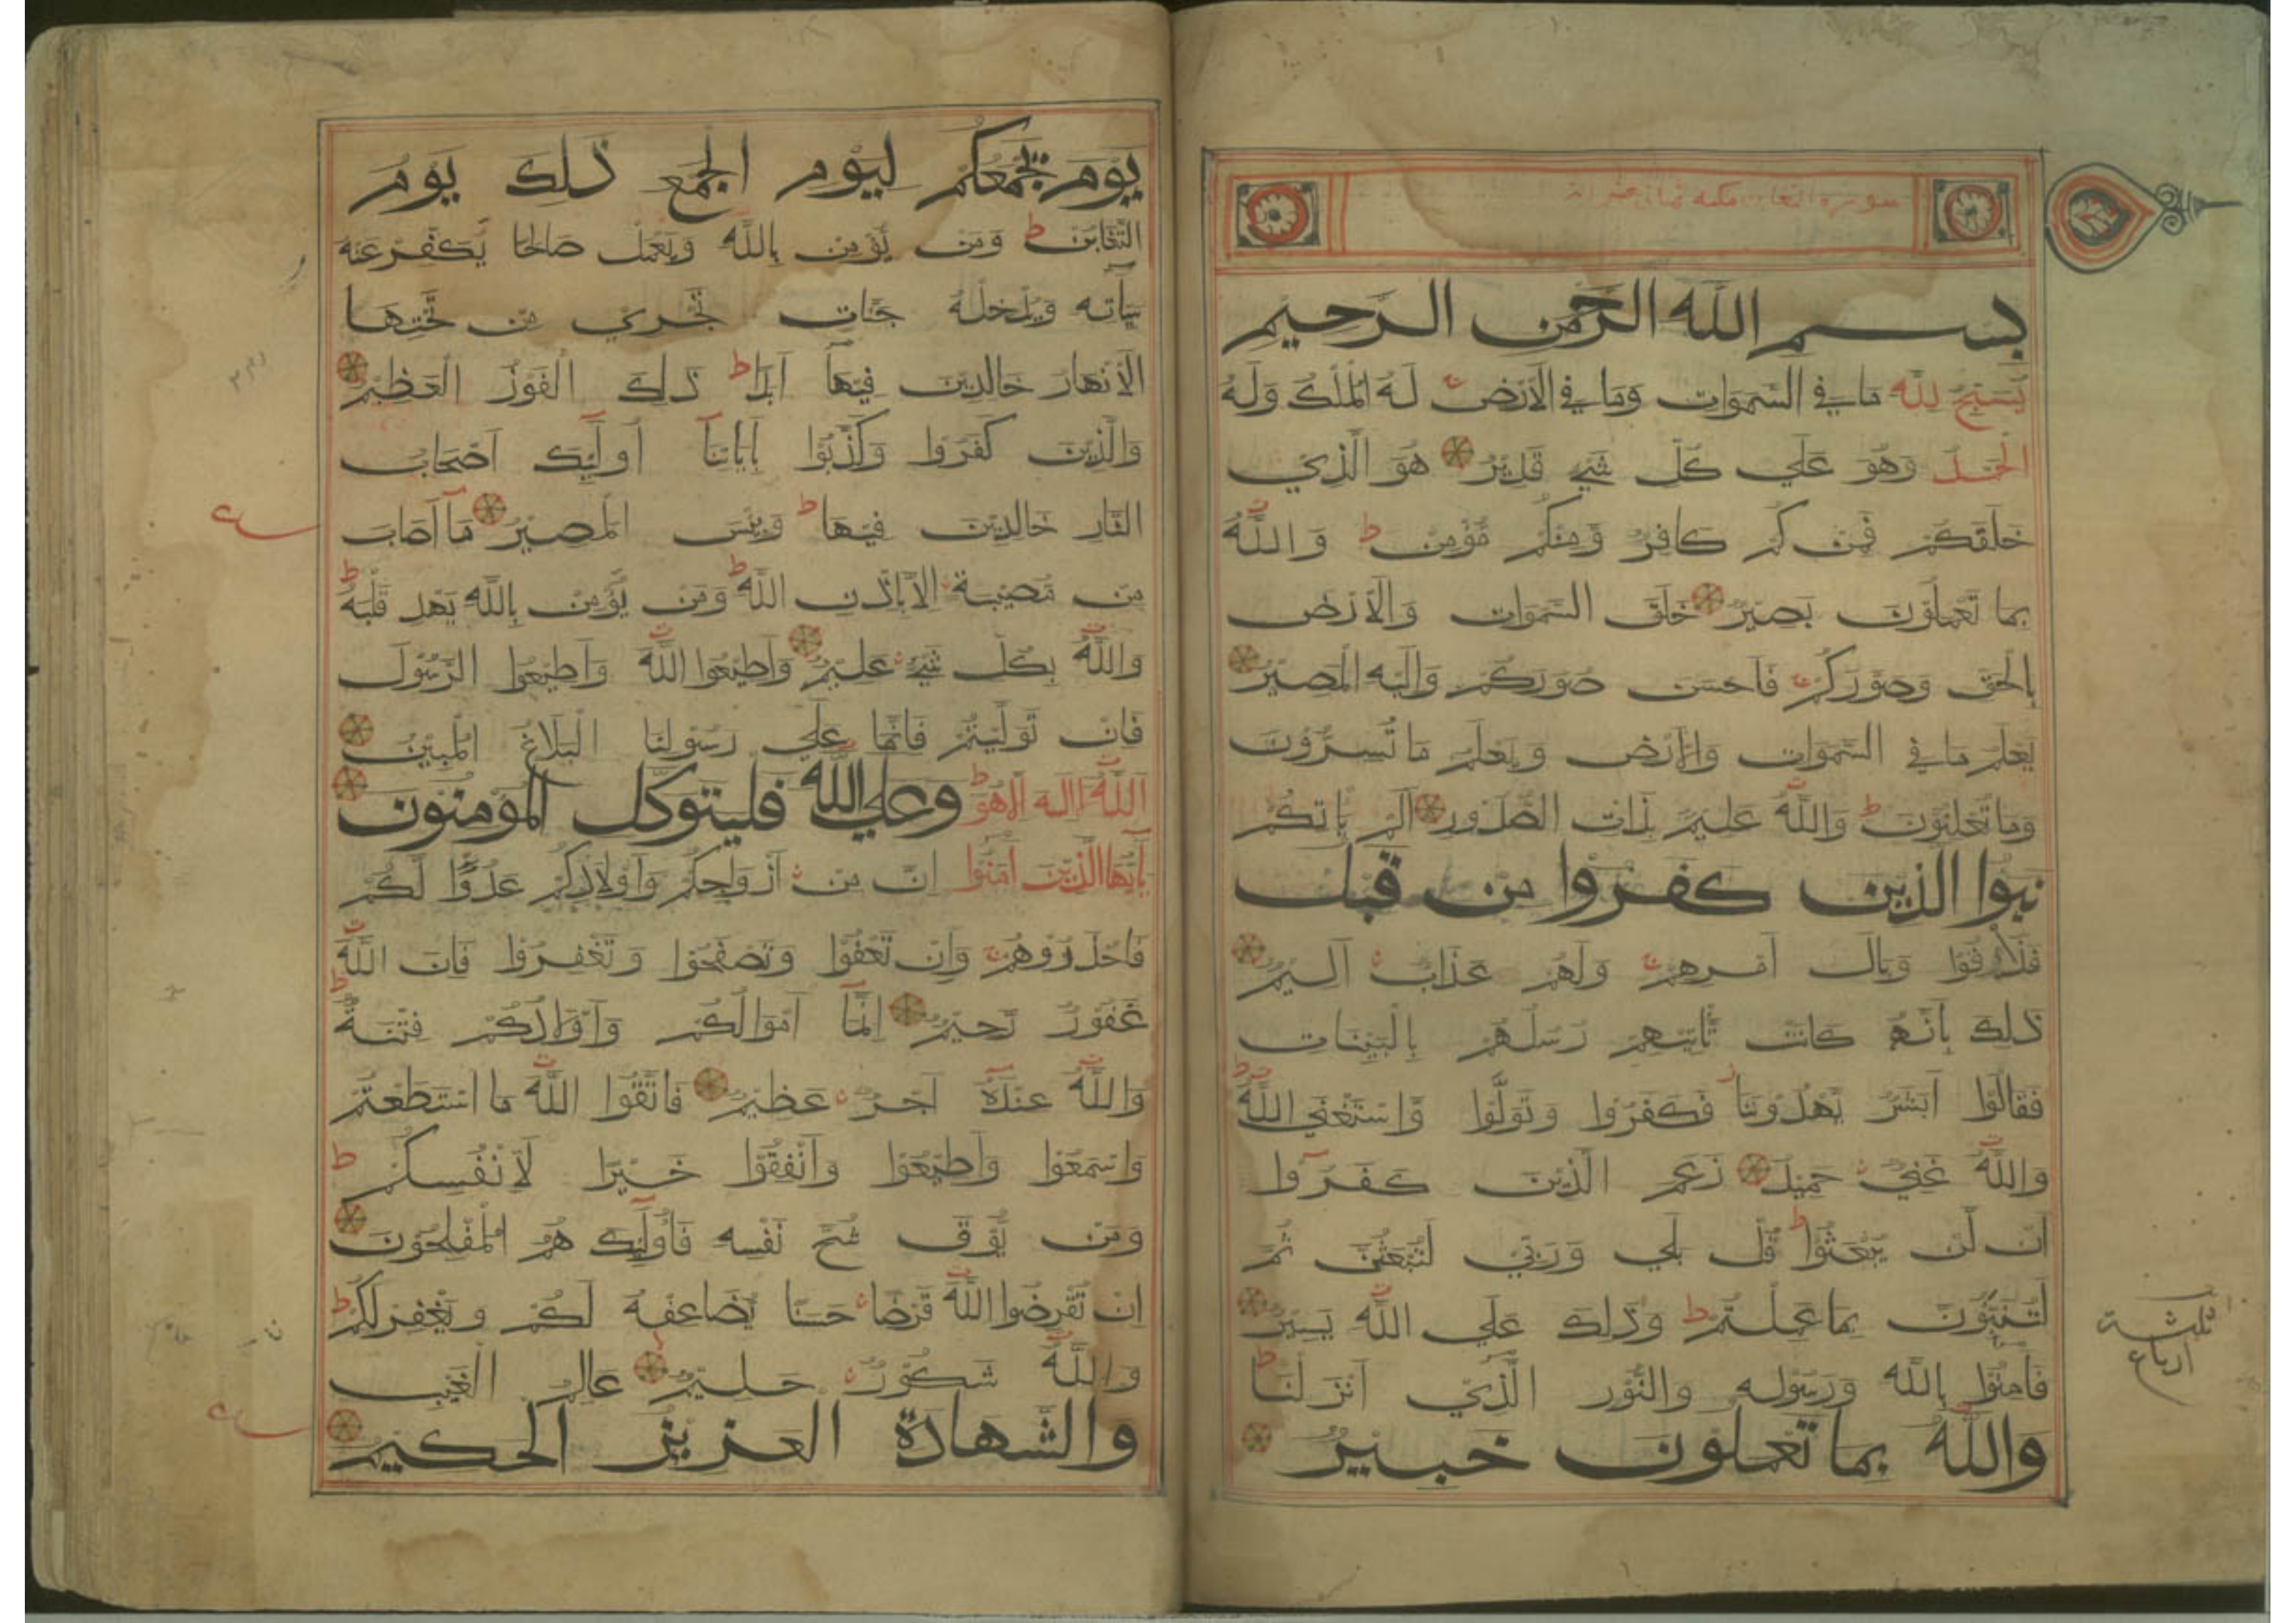 سورة التغابن مكية ثماني عشر اية
بسم الله الرحمن الرحيم
يُسَبِّحُ لِلّٰهِ مَا فِي السَّمٰوَاتِ وَمَا فِي الْاَرْضِ لَهُ الْمُلْكُ وَلَهُ
الْحَمْدُ وَهُوَ عَلٰي كُلِّ شَيْءٍ قَدِيْرٌ هُوَ الَّذِيْ
خَلَقَكُمْ فَمِنْكُمْ كَافِرٌ وَّمِنْكُمْ مُّؤْمِنٌ ط وَاللّٰهُ
بِمَا تَعْمَلُوْنَ بَصِيْرٌ خَلَقَ السَّمٰوَاتِ وَالْاَرْضَ
بِالْحَقِّ وَصَوَّرَكُمْ فَاَحْسَنَ صُوَرَكُمْ وَاِلَيْهِ الْمَصِيْرُ
يَعْلَمُ مَا فِي السَّمٰوَاتِ وَالْاَرْضِ وَيَعْلَمُ مَا تُسِرُّوْنَ
وَمَا تُعْلِنُوْنَ ط وَاللّٰهُ عَلِيْمٌ بِذَاتِ الصُّدُوْرِ اَلَمْ يَاْتِكُمْ
نبؤا الذين كفروا من قبل
فَذَاقُوْا وَبَالَ اَمْرِهِمْ وَلَهُمْ عَذَابٌ اَلِيْمٌ
ذٰلِكَ بِاَنَّهُ كَانَتْ تَّاْتِيْهِمْ رُسُلُهُمْ بِالْبَيِّنَاتِ
فَقَالُوْا اَبَشَرٌ يَّهْدُوْنَنَا فَكَفَرُوْا وَتَوَلَّوْا وَّاسْتَغْنَي اللّٰهُ ط
وَاللّٰهُ غَنِيٌّ حَمِيْدٌ زَعَمَ الَّذِيْنَ كَفَرُوْا
اَنْ لَّنْ يُّبْعَثُوْا ط قُلْ بَلٰي وَرَبِّيْ لَتُبْعَثُنَّ ثُمَّ
لَتُنَبَّؤُنَّ بِمَا عَمِلْتُمْ ط وَذٰلِكَ عَلَي اللّٰهِ يَسِيْرٌ
فَاٰمِنُوْا بِاللّٰهِ وَرَسُوْلِهِ وَالنُّوْرِ الَّذِيْ اَنْزَلْنَا ط
والله بما تعملون خبير
ثلثة
ارباع
يوم يجمعكم ليوم الجمع ذلك يوم
التَّغَابُنِ ط وَمَنْ يُّؤْمِنْ بِاللّٰهِ وَيَعْمَلْ صَالِحًا يُّكَفِّرْ عَنْهُ
سَيِّاٰتِهِ وَيُدْخِلْهُ جَنَّاتٍ تَجْرِيْ مِنْ تَحْتِهَا
الْاَنْهَارُ خَالِدِيْنَ فِيْهَا اَبَدًا ط ذٰلِكَ الْفَوْزُ الْعَظِيْمُ
وَالَّذِيْنَ كَفَرُوْا وَكَذَّبُوْا بِاٰيَاتِنَا اُولٰئِكَ اَصْحَابُ
النَّارِ خَالِدِيْنَ فِيْهَا ط وَبِئْسَ الْمَصِيْرُ مَا اَصَابَ
مِنْ مُّصِيْبَةٍ اِلَّا بِاِذْنِ اللّٰهِ ط وَمَنْ يُّؤْمِنْ بِاللّٰهِ يَهْدِ قَلْبَهُ ط
وَاللّٰهُ بِكُلِّ شَيْءٍ عَلِيْمٌ وَاَطِيْعُوا اللّٰهَ وَاَطِيْعُوا الرَّسُوْلَ
فَاِنْ تَوَلَّيْتُمْ فَاِنَّمَا عَلٰي رَسُوْلِنَا الْبَلَاغُ الْمُبِيْنُ
اَللّٰهُ لَا اِلٰهَ اِلَّا هُوَ ط وعلي الله فليتوكل المؤمنون
يٰاَيُّهَا الَّذِيْنَ اٰمَنُوْا اِنَّ مِنْ اَزْوَاجِكُمْ وَاَوْلَادِكُمْ عَدُوًّا لَّكُمْ
فَاحْذَرُوْهُمْ وَاِنْ تَعْفُوْا وَتَصْفَحُوْا وَتَغْفِرُوْا فَاِنَّ اللّٰهَ
غَفُوْرٌ رَّحِيْمٌ اِنَّمَا اَمْوَالُكُمْ وَاَوْلَادُكُمْ فِتْنَةٌ ط
وَاللّٰهُ عِنْدَهُ اَجْرٌ عَظِيْمٌ فَاتَّقُوا اللّٰهَ مَا اسْتَطَعْتُمْ
وَاسْمَعُوْا وَاَطِيْعُوْا وَاَنْفِقُوْا خَيْرًا لِّاَنْفُسِكُمْ ط
وَمَنْ يُّوْقَ شُحَّ نَفْسِهِ فَاُولٰئِكَ هُمُ الْمُفْلِحُوْنَ
اِنْ تُقْرِضُوا اللّٰهَ قَرْضًا حَسَنًا يُّضَاعِفْهُ لَكُمْ وَيَغْفِرْ لَكُمْ ط
وَاللّٰهُ شَكُوْرٌ حَلِيْمٌ عَالِمُ الْغَيْبِ
والشهادة العزيز الحكيم